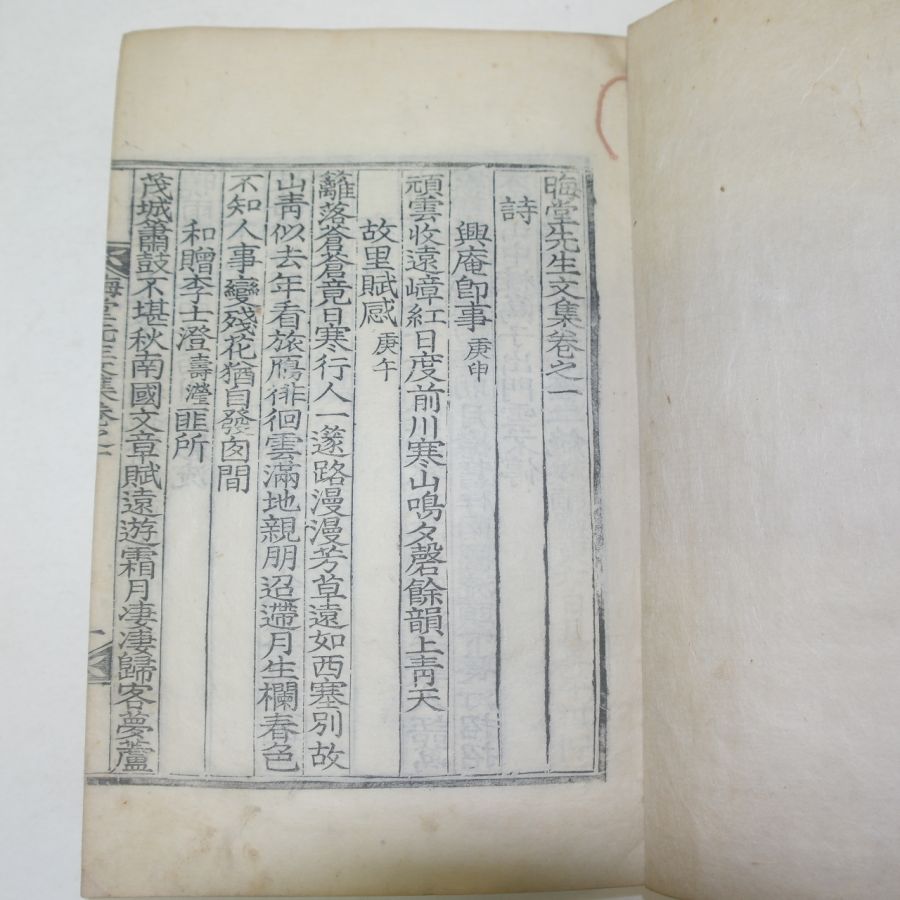 晦堂先生文集卷之一
詩
興庵卽事 庚申
頑雲收遠嶂紅日度前川寒山鳴夕磬餘韻上靑天
故里賦感 庚午
籬落蒼蒼竟日寒行人一邃路漫漫芳草遠如西塞別故
山靑似去年看旅鴈徘徊雲滿地親朋迢遰月生欄春色
不知人事變殘花猶自發囪間
和贈李士澄 壽瀅 匪所
茂城簫鼓不堪秋南國文章賦遠遊霜月凄凄歸客夢蘆
晦堂先生文集卷之一